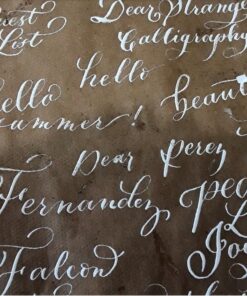 Guest
List
Dear Strange
Calligraphy
hello
hello
summer!
beaut
Dear Perez
Fernandez
pe
L
Jo
Falcon